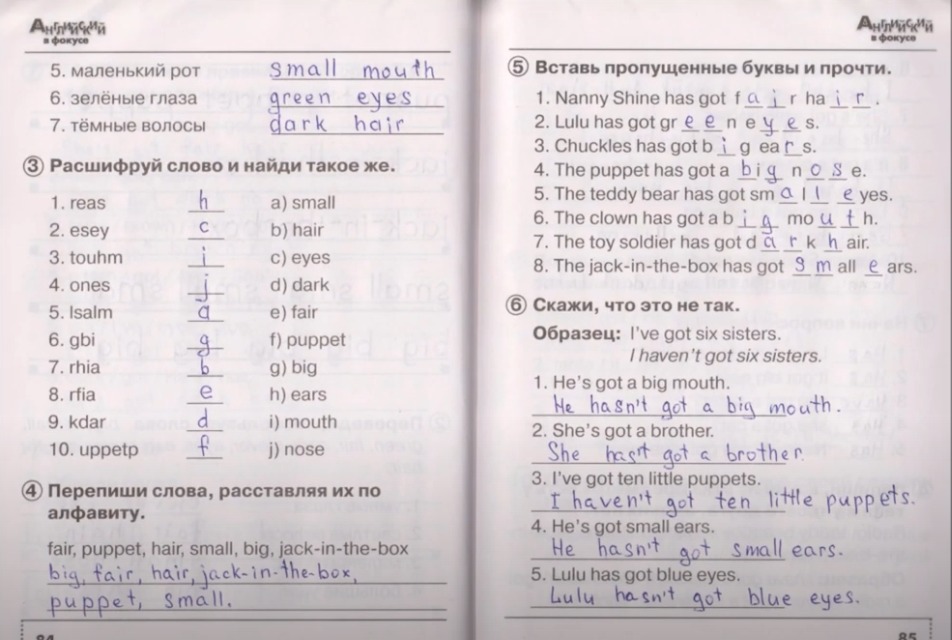 Английский
в фокусе
5. маленький рот small mouth
6. зелёные глаза green eyes
7. тёмные волосы dark hair
③ Расшифруй слово и найди такое же.
1. reas h a) small
2. esey c b) hair
3. touhm i c) eyes
4. ones j d) dark
5. lsalm a e) fair
6. gbi g f) puppet
7. rhia b g) big
8. rfia e h) ears
9. kdar d i) mouth
10. uppetp f j) nose
④ Перепиши слова, расставляя их по
алфавиту.
fair, puppet, hair, small, big, jack-in-the-box
big, fair, hair, jack-in-the-box,
puppet, small.
84
Английский
в фокусе
⑤ Вставь пропущенные буквы и прочти.
1. Nanny Shine has got f a i r ha i r .
2. Lulu has got gr e e n e y e s.
3. Chuckles has got b i g ea r s.
4. The puppet has got a b i g n o s e.
5. The teddy bear has got sm a l l e yes.
6. The clown has got a b i g mo u t h.
7. The toy soldier has got d a r k h air.
8. The jack-in-the-box has got s m all e ars.
⑥ Скажи, что это не так.
Образец: I've got six sisters.
I haven't got six sisters.
1. He's got a big mouth.
He hasn't got a big mouth.
2. She's got a brother.
She hasn't got a brother.
3. I've got ten little puppets.
I haven't got ten little puppets.
4. He's got small ears.
He hasn't got small ears.
5. Lulu has got blue eyes.
Lulu hasn't got blue eyes.
85